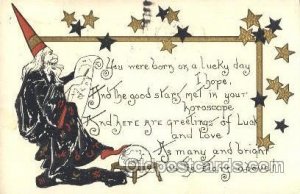 You were born on a lucky day
I hope,
And the good stars met in your
horoscope
And here are greetings of Luck
and Love
As many and bright